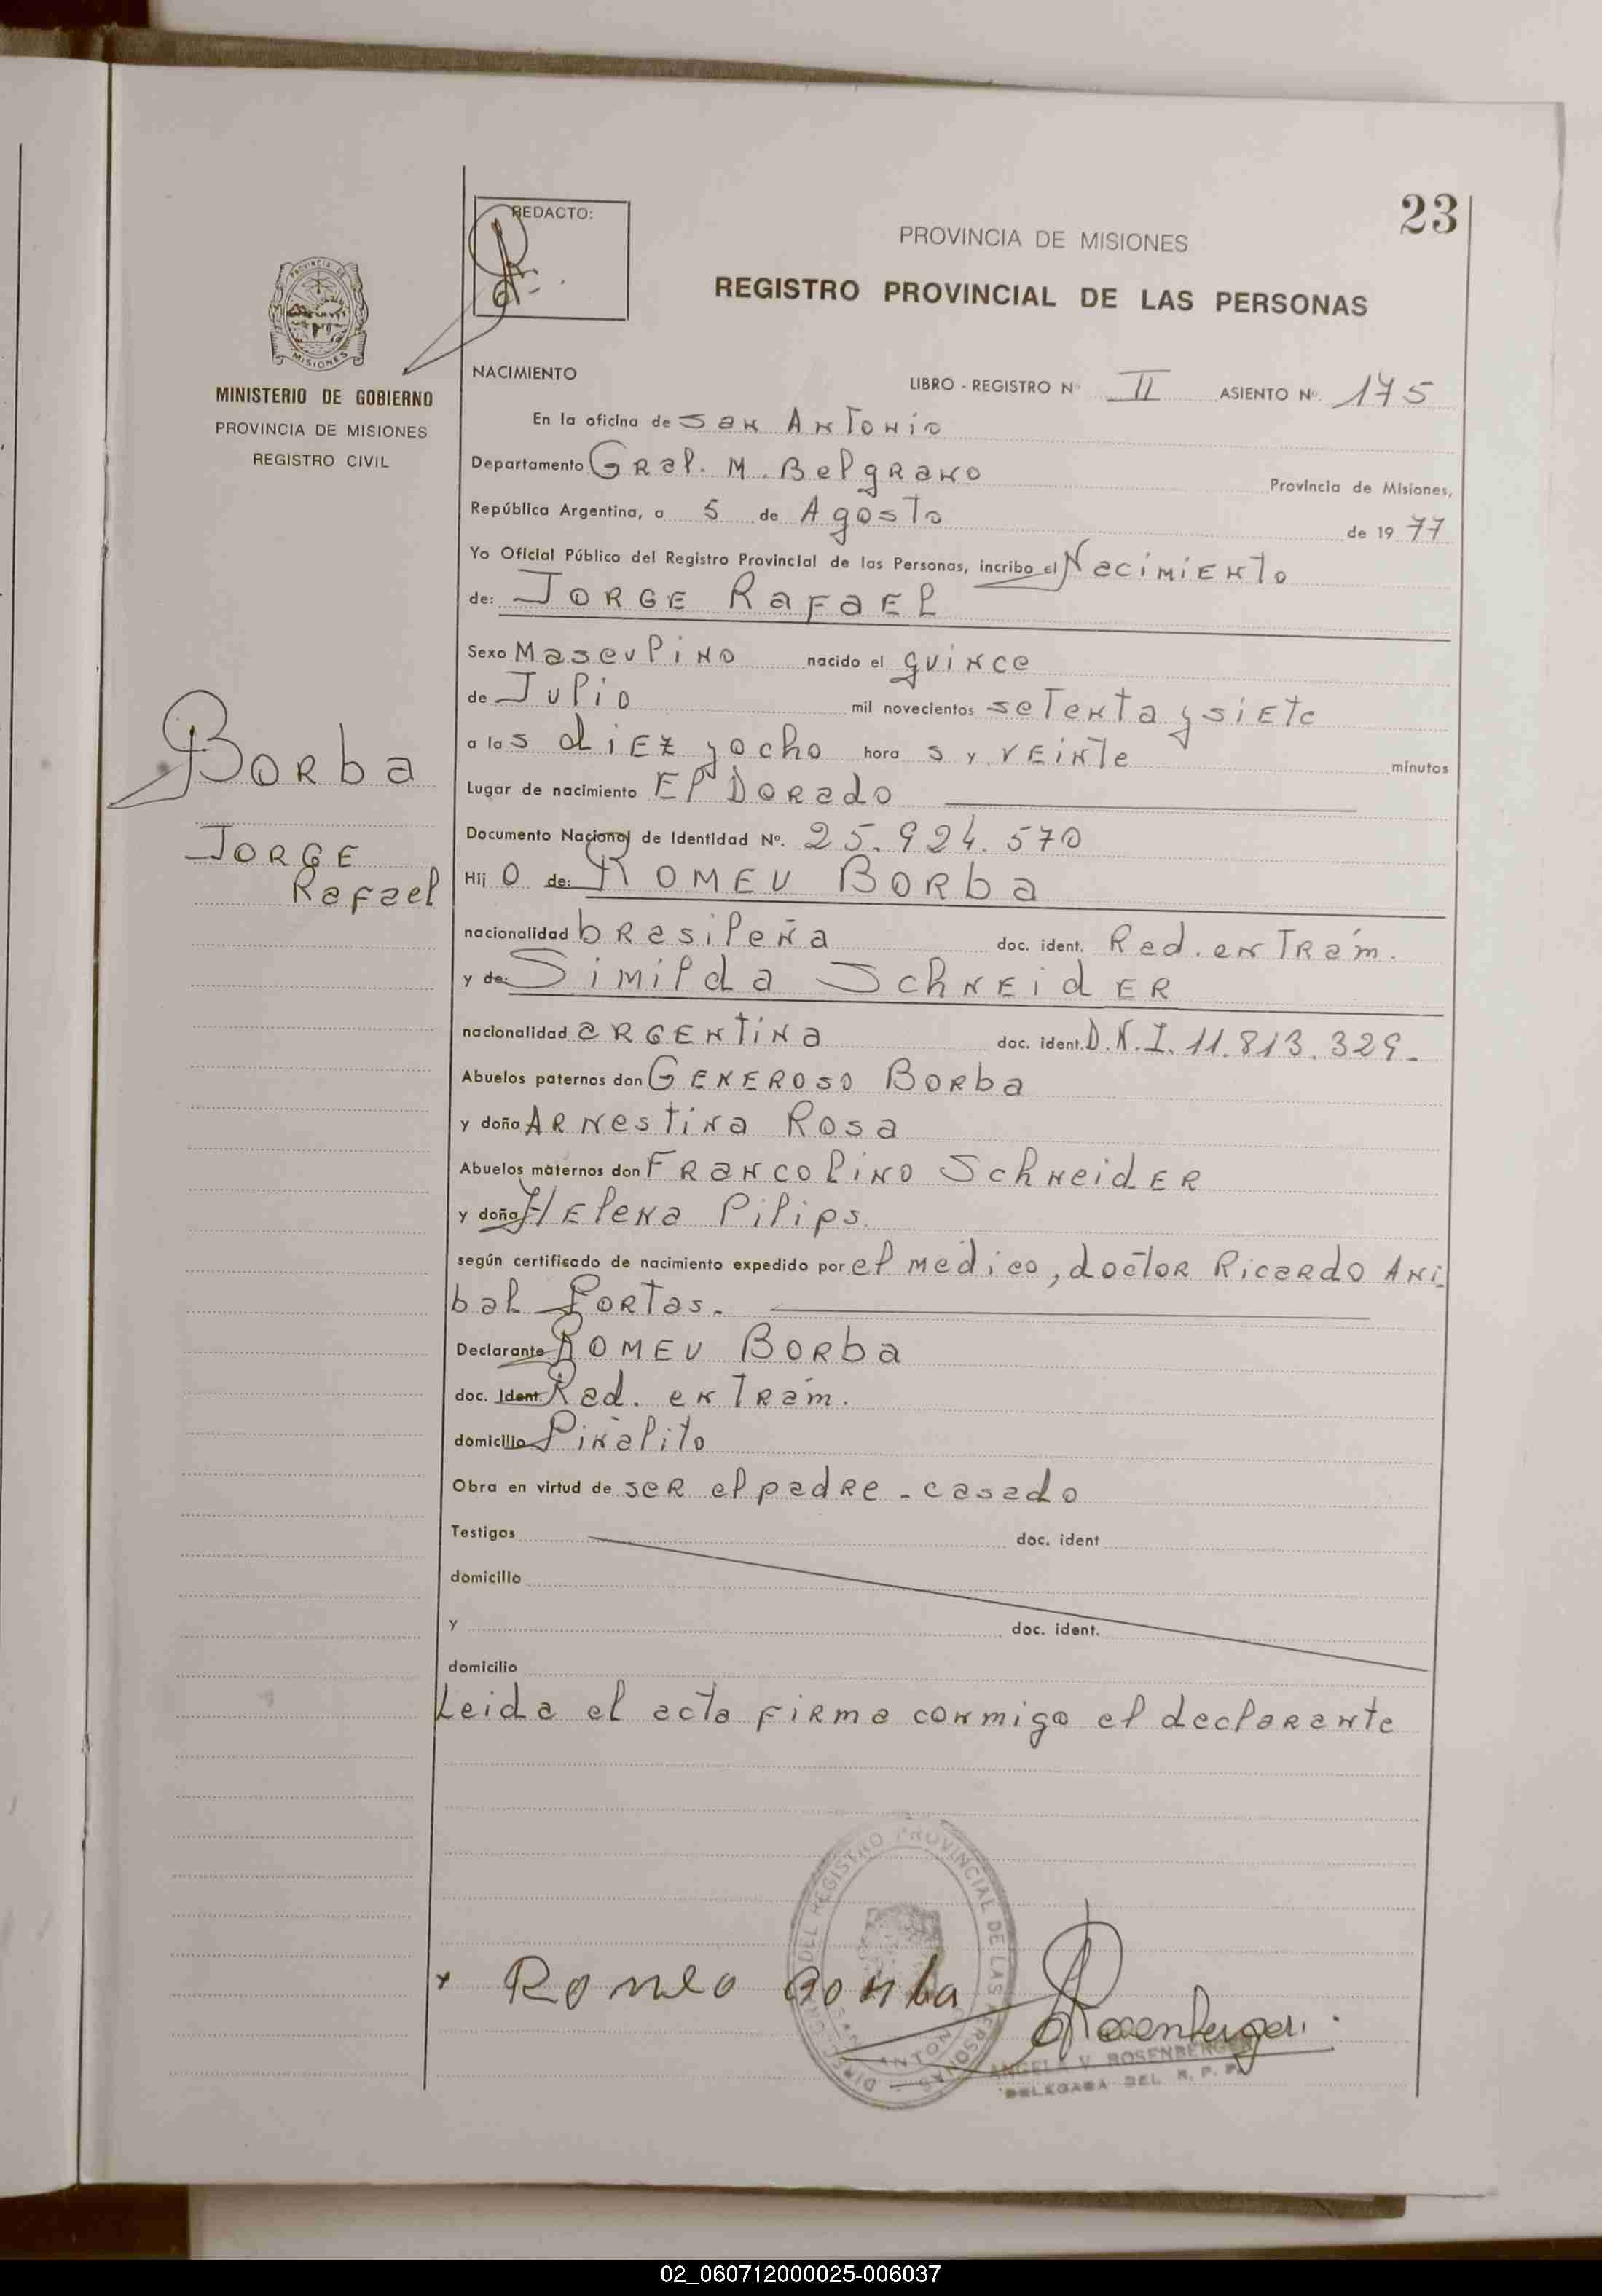 23
REDACTO:
PROVINCIA DE MISIONES
REGISTRO PROVINCIAL DE LAS PERSONAS
MISIONES
MINISTERIO DE GOBIERNO
PROVINCIA DE MISIONES
REGISTRO CIVIL
NACIMIENTO LIBRO - REGISTRO Nº II ASIENTO Nº. 175
En la oficina de San Antonio
Departamento Gral. M. Belgrano Provincia de Misiones,
República Argentina, a 5 de Agosto de 1977
Yo Oficial Público del Registro Provincial de las Personas, incribo el Nacimiento
de: JORGE RafaEl
Sexo Masculino nacido el quince
de Julio mil novecientos setenta y siete
a las diez y ocho horas y veinte minutos
Lugar de nacimiento El Dorado
Documento Nacional de Identidad Nº. 25.924.570
Hijo de: ROMEU BORba
nacionalidad brasileña doc. ident. Red. en Trám.
y de: Similda SchneidER
nacionalidad argentina doc. ident. D.N.I. 11.813.329.
Abuelos paternos don Generoso Borba
y doña Arnestina Rosa
Abuelos maternos don Francolino Schneider
y doña Helena Pilips.
según certificado de nacimiento expedido por el medico, doctor Ricardo Ani
bal Portas.
Declarante ROMEU BORba
doc. Ident. Rad. en Trám.
domicilio Piñalito
Obra en virtud de ser el padre - casado
Testigos doc. ident
domicilio
y doc. ident.
domicilio
Leida el acta firma conmigo el declarante
Borba
JORGE
Rafael
DEL REGISTRO PROVINCIAL DE LAS PERSONAS
SAN ANTONIO
x Romeo Borba
Rosenberger.
ANGELA V. ROSENBERGER
DELEGADA DEL R. P. P.
02_060712000025-006037